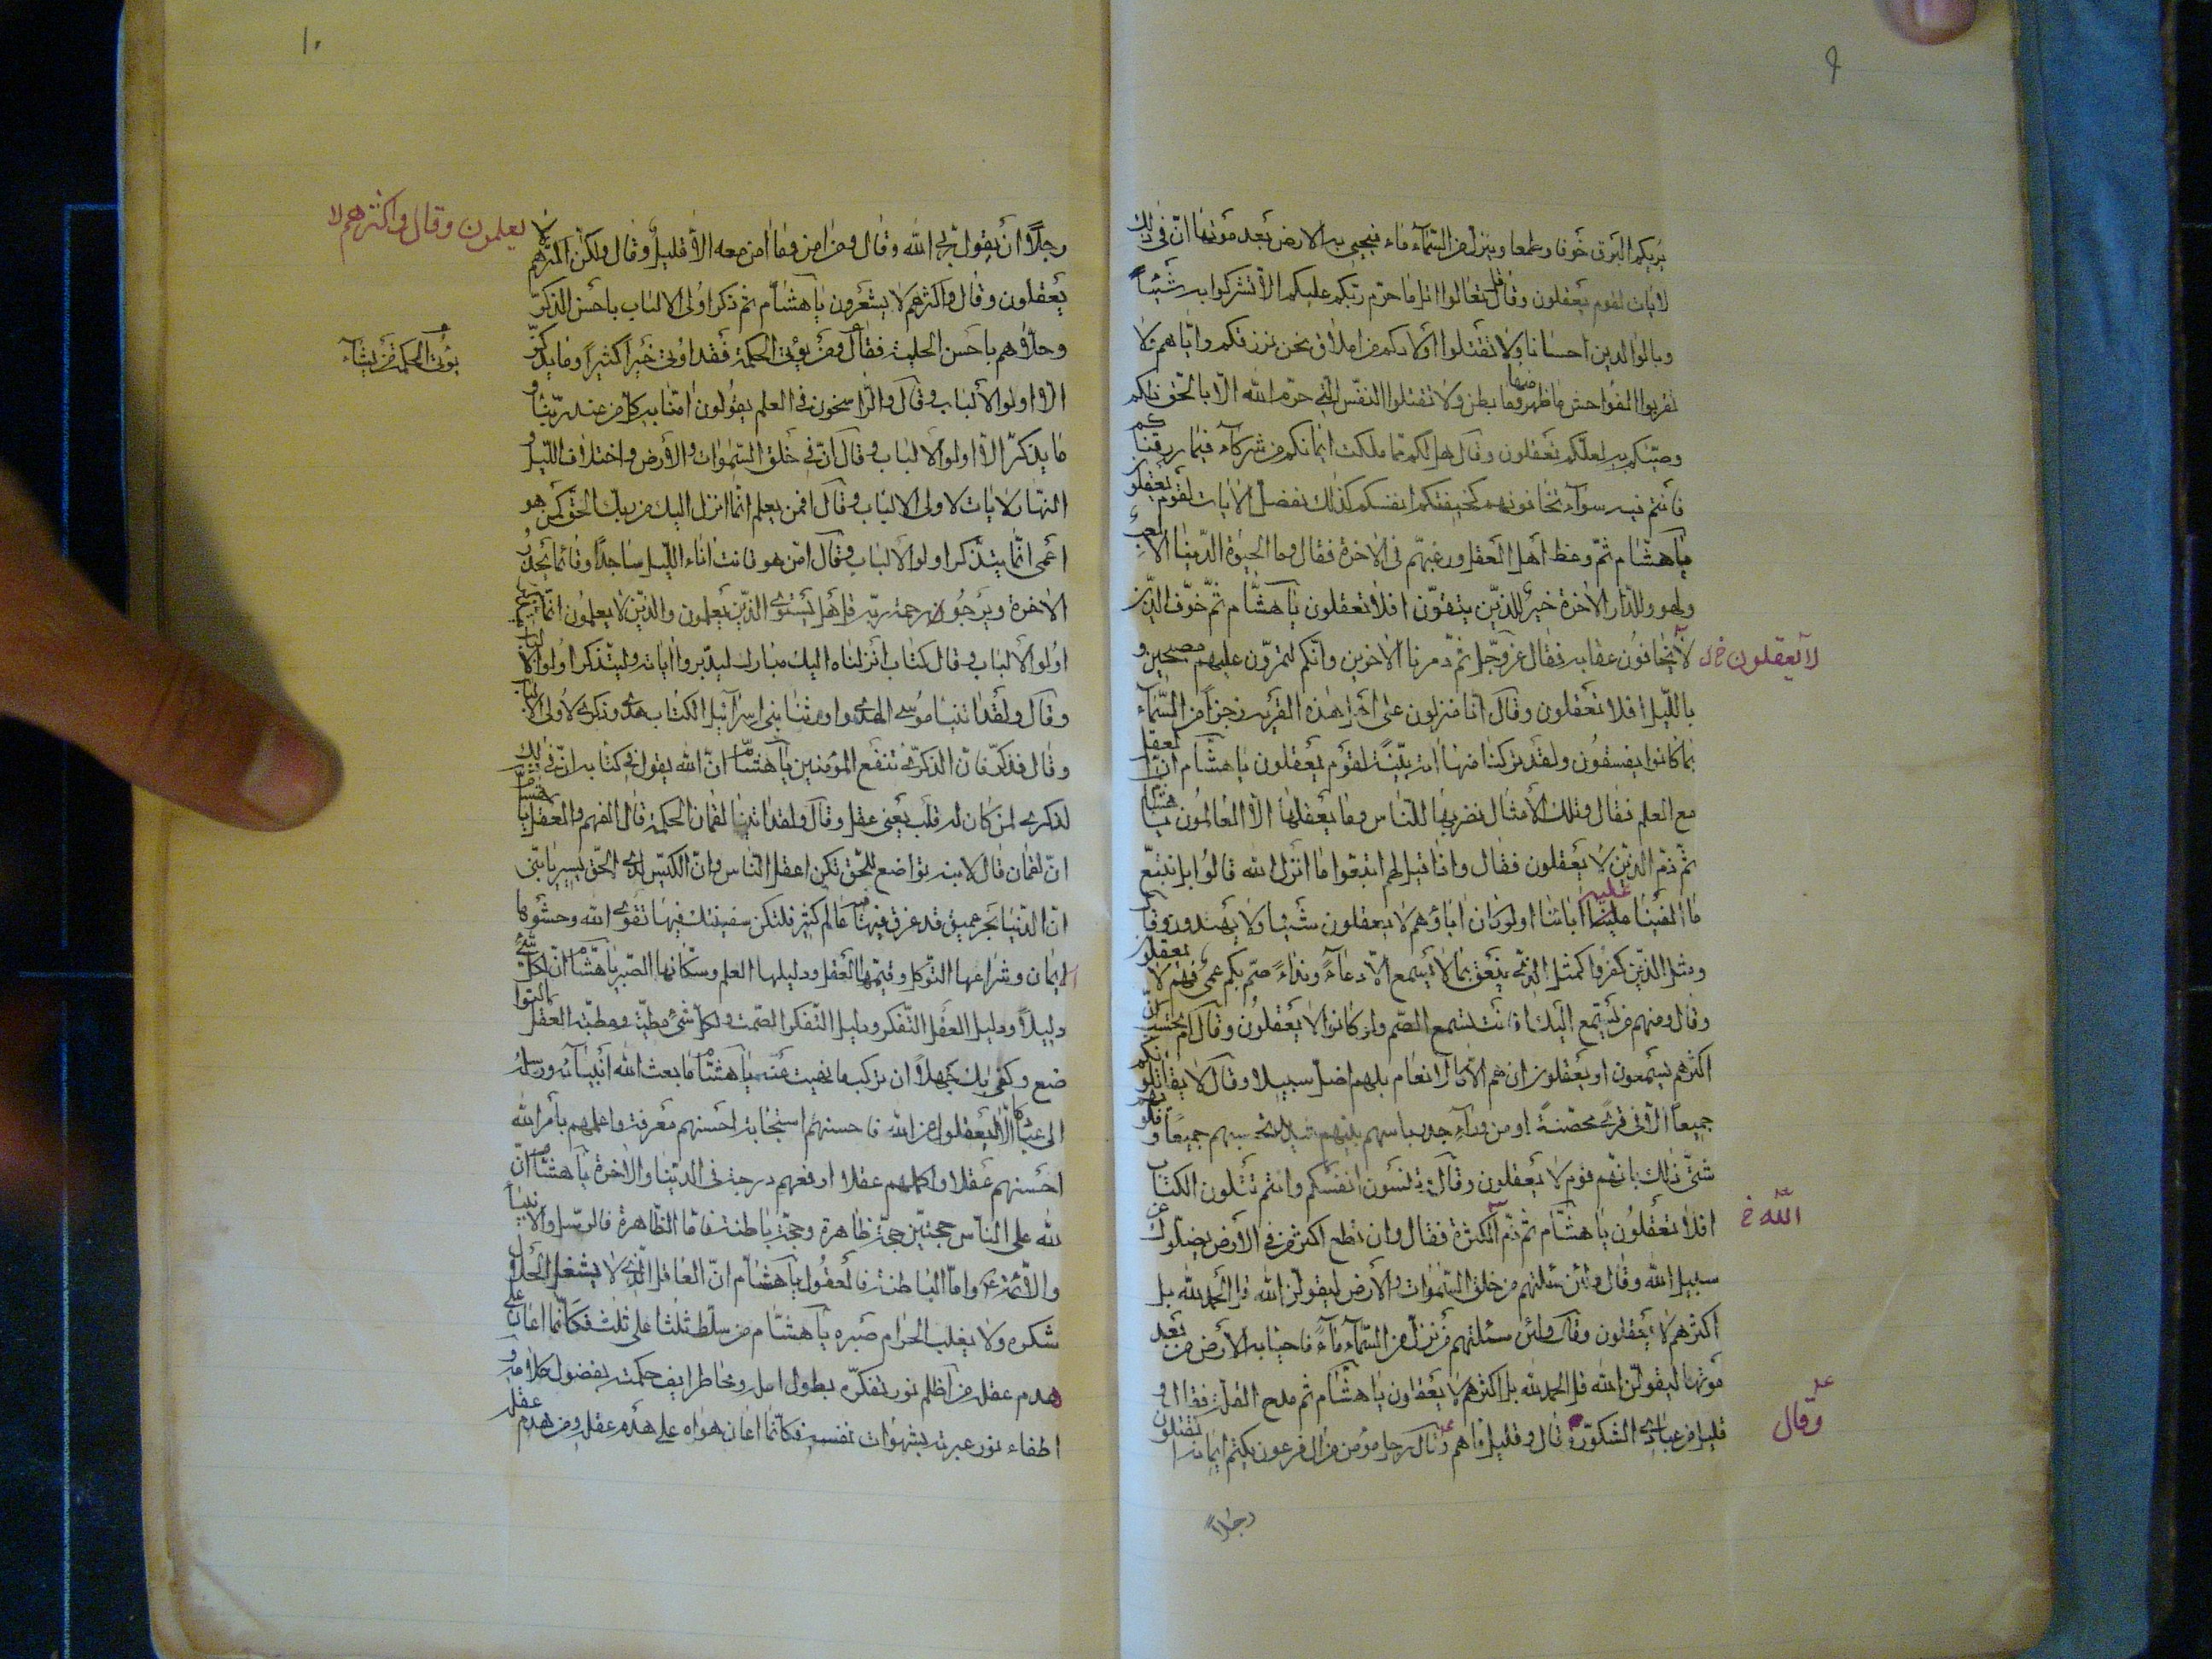 ٩
يريكم البرق خوفا وطمعا وينزل من السّمآء ماء فيحيي به الارض بعد موتها انّ في ذلك
لايات لقوم يعقلون وقال قل تعالوا اتل ما حرّم ربّكم عليكم الّا تشركوا به شيئاً
وبالوالدين احسانا ولا تقتلوا اولادكم من املاق نحن نرزقكم وايّاهم ولا
تقربوا الفواحش ما ظهر منها وما بطن ولا تقتلوا النفس الّتي حرّم الله الّا بالحقّ ذلكم
وصّيكم به لعلّكم تعقلون وقال هل لكم ممّا ملكت ايمانكم من شركآء فيما رزقناكم
فأنتم فيه سوآء تخافونهم كخيفتكم انفسكم كذلك نفصّل الايات لقوم يعقلون
يا هشام ثمّ وعظ اهل العقل ورغّبهم في الاخرة فقال وما الحيوة الدّنيا الا لعب
ولهو وللدّار الاخرة خير للذين يتقون افلا تعقلون يا هشّام ثمّ خوّف الذين
لا يخافون عقابه فقال عزّ وجلّ ثمّ دمرنا الاخرين وانّكم لتمرّون عليهم مصبحين و
لا يعقلون خ ل
بالليل افلا تعقلون وقال انّا منزلون على أهل هذه القرية رجزاً من السّمآء
بما كانوا يفسقون ولقد تركنا منها اية بيّنة لقوم يعقلون يا هشّام انّ العقل
مع العلم فقال وتلك الأمثال نضربها للناس وما يعقلها الّا العالمون يا هشام
ثمّ ذمّ الذين لا يعقلون فقال واذا قيل لهم اتبعوا ما انزل الله قالوا بل نتبع
ما الفينا عليه اباءنا اولوكان اباؤهم لا يعقلون شيئا ولا يهتدون وقال
ومثل الذين كفروا كمثل الذي ينعق بما لا يسمع الّا دعاءً ونداءً صمّ بكم عمي فهم لا يعقلون
وقال ومنهم من يستمع اليك افانت تسمع الصّم ولو كانوا لا يعقلون وقال ام تحسب انّ
اكثرهم يسمعون او يعقلون ان هم الّا كالانعام بل هم اضلّ سبيلا وقال لا يقاتلونكم
جميعاً الّا في قرى محصّنة او من ورآء جدر باسهم بينهم شديد تحسبهم جميعاً و قلوبهم
شتّى ذلك بانّهم قوم لا يعقلون وقال وتنسون انفسكم وانتم تتلون الكتاب
افلا تعقلون يا هشّام ثمّ ذمّ الكثرة فقال وان تطع اكثر من في الأرض يضلّوك عن
الله خ
سبيل الله وقال ولئن سئلتهم من خلق السّموات والأرض ليقولنّ الله قل الحمد لله بل
اكثرهم لا يعقلون وقال ولئن سئلتهم من نزل من السّمآء مآءً فاحيا به الأرض من بعد
موتها ليقولنّ الله قل الحمد لله بل اكثرهم لا يعقلون يا هشّام ثم مدح القلّة فقال و
قليل من عبادي الشكور قال وقليل ما هم وقال رجل مؤمن من ال فرعون يكتم ايمانه اتقتلون
وقال
رجلاً
١٠
رجلاً ان يقول ربّي الله وقال ومن امن وما امن معه الّا قليل وقال ولكنّ اكثرهم لا
يعلمون وقال واكثرهم لا
يعقلون وقال واكثرهم لا يشعرون يا هشام ثم ذكر اولى الالباب باحسن الذكر
وحلّاهم باحسن الحلية فقال ومن يؤتى الحكمة فقد اوتي خيراً كثيراً وما يذكّر
يؤتي الحكمة من يشآء
الّا اولوا الألباب وقال والرّاسخون في العلم يقولون امنّا به كلّ من عند ربّنا و
ما يذكّر الّا اولوا الالباب وقال انّ في خلق السّموات والأرض واختلاف الليل و
النهار لايات لاولى الالباب وقال افمن يعلم انّما انزل اليك من ربك الحق كمن هو
اعمى انّما يتذّكر اولوا الألباب وقال امّن هو قانت اناء الليل ساجداً وقائما يحذر
الاخرة ويرجوا رحمة ربّه قل هل يستوي الذين يعلمون والذين لا يعلمون انّما يتذكر
اولوا الألباب وقال كتاب انزلناه اليك مبارك ليدّبروا اياته وليتذكر اولوا الالباب
وقال ولقد اتينا موسى الهدى واورثنا بني اسرآئيل الكتاب هدى وذكرى لاولى الالباب
وقال فذكّر فانّ الذكرى تنفع المؤمنين يا هشام انّ الله يقول في كتابه انّ في ذلك
لذكرى لمن كان له قلب يعنى عقل وقال ولقد اتينا لقمان الحكمة قال الفهم والعقل يا هشام
انّ لقمان قال لابنه تواضع للحق تكن اعقل الناس وانّ الكيّس لدى الحق يسير يا بنى
انّ الدّنيا بحر عميق قد غرق فيها عالم كثير فلتكن سفينتك فيها تقوى الله وحشوها
الايمان وشراعها التّوكل وقيّمها العقل ودليلها العلم وسكّانها الصّبر يا هشام انّ لكلّ شيء
دليلاً ودليل العقل التّفكر ودليل التّفكر الصّمت ولكل شيء مطيّة ومطيّة العقل التوا
ضع وكفى بك جهلاً ان تركب ما نهيت عنه يا هشام ما بعث الله انبيآئه ورسله
الى عباده الّا ليعقلوا عن الله فاحسنهم استجابة احسنهم معرفة واعلمهم بأمر الله
احسنهم عقلا واكملهم عقلا ارفعهم درجة في الدّنيا والاخرة يا هشام انّ
لله على الناس حجتين حجّة ظاهرة وحجّة باطنة فامّا الظّاهرة فالرّسل والانبيا
والائمّة ع وامّا الباطنة فالعقول يا هشام انّ العاقل الّذي لا يشغل الحلال
شكره ولا يغلب الحرام صبره يا هشّام من سلّط ثلثا على ثلث فكانّما اعان على
هدم عقله من اظلم نور تفكّره بطول امله ومحا طرايف حكمته بفضول كلامه و
اطفاء نور عبرته بشهوات نفسه فكانّما اعان هواه على هدم عقله ومن هدم عقله